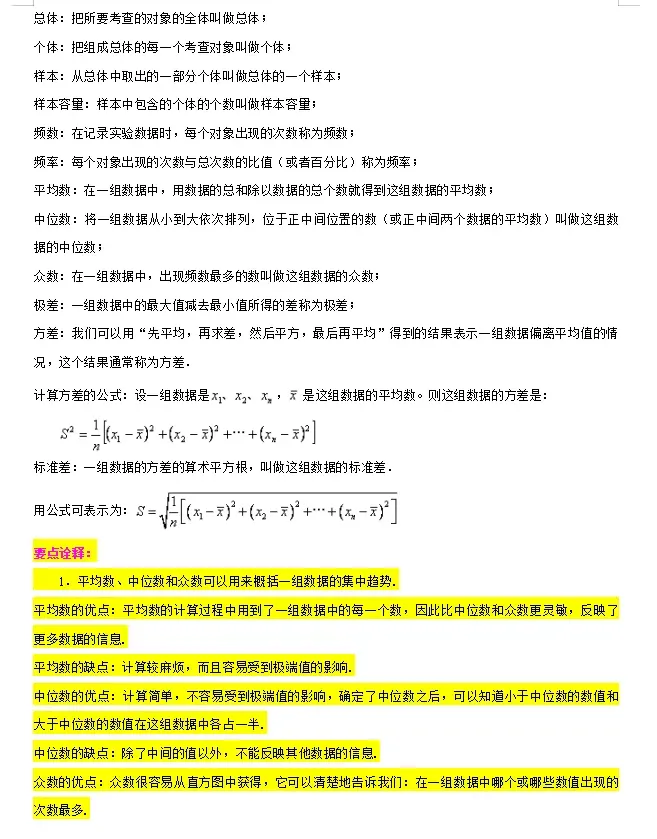 总体：把所要考查的对象的全体叫做总体；
个体：把组成总体的每一个考查对象叫做个体；
样本：从总体中取出的一部分个体叫做总体的一个样本；
样本容量：样本中包含的个体的个数叫做样本容量；
频数：在记录实验数据时，每个对象出现的次数称为频数；
频率：每个对象出现的次数与总次数的比值（或者百分比）称为频率；
平均数：在一组数据中，用数据的总和除以数据的总个数就得到这组数据的平均数；
中位数：将一组数据从小到大依次排列，位于正中间位置的数（或正中间两个数据的平均数）叫做这组数
据的中位数；
众数：在一组数据中，出现频数最多的数叫做这组数据的众数；
极差：一组数据中的最大值减去最小值所得的差称为极差；
方差：我们可以用“先平均，再求差，然后平方，最后再平均”得到的结果表示一组数据偏离平均值的情
况，这个结果通常称为方差．
计算方差的公式：设一组数据是x₁、x₂、xₙ，x̄ 是这组数据的平均数。则这组数据的方差是：
S² = 1/n[(x₁−x̄)²+(x₂−x̄)²+⋯+(xₙ−x̄)²]
标准差：一组数据的方差的算术平方根，叫做这组数据的标准差．
用公式可表示为：S=√(1/n[(x₁−x̄)²+(x₂−x̄)²+⋯+(xₙ−x̄)²])
要点诠释：
1．平均数、中位数和众数可以用来概括一组数据的集中趋势．
平均数的优点：平均数的计算过程中用到了一组数据中的每一个数，因此比中位数和众数更灵敏，反映了
更多数据的信息．
平均数的缺点：计算较麻烦，而且容易受到极端值的影响．
中位数的优点：计算简单，不容易受到极端值的影响，确定了中位数之后，可以知道小于中位数的数值和
大于中位数的数值在这组数据中各占一半．
中位数的缺点：除了中间的值以外，不能反映其他数据的信息．
众数的优点：众数很容易从直方图中获得，它可以清楚地告诉我们：在一组数据中哪个或哪些数值出现的
次数最多．